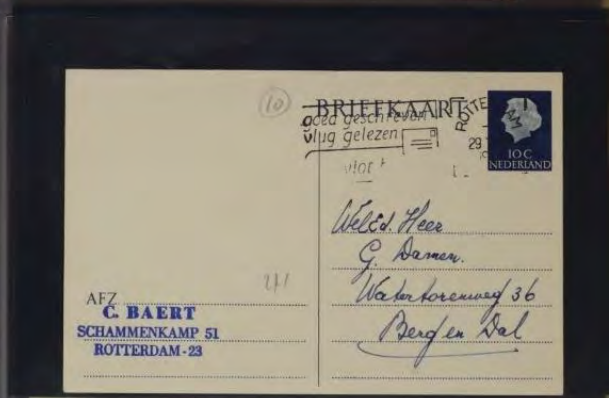 10
BRIEFKAART
goed geschreven
vlug gelezen
ROTTE AM
29
10 C
NEDERLAND
WelEd. Heer
G. Damen.
Watertorenweg 36
Berg en Dal
271
AFZ
C. BAERT
SCHAMMENKAMP 51
ROTTERDAM-23